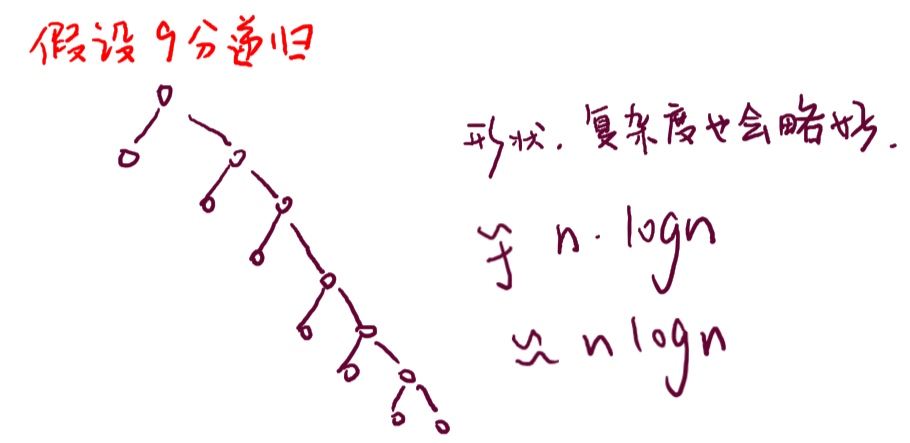 假设9分递归
形状.复杂度也会略好.
n·logn
≈ nlogn